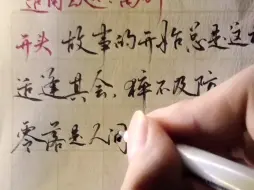 开头 故事的开始总是这
适逢其会，猝不及防
零落是人间